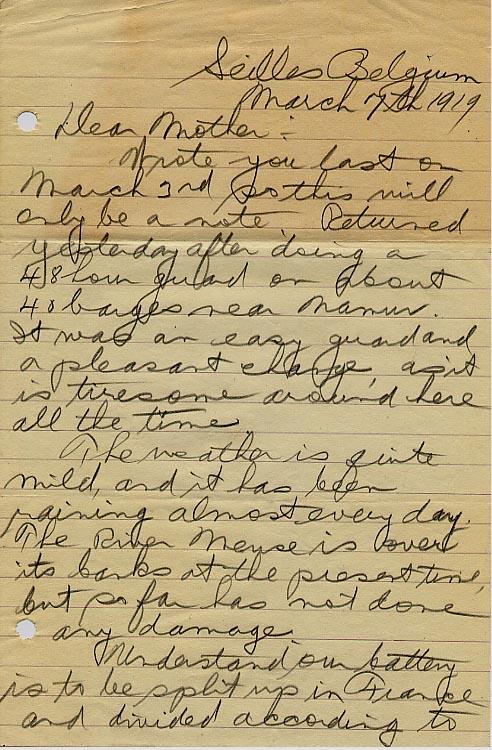 Seilles Belgium
March 7th 1919
Dear Mother:-
Wrote you last on
March 3rd so this will
only be a note Returned
yesterday after doing a
48 hour guard on about
40 barges near Namur.
It was an easy guard and
a pleasant change, as it
is tiresome around here
all the time.
The weather is quite
mild, and it has been
raining almost every day.
The River Meuse is over
its banks at the present time,
but so far has not done
any damage.
Understand our battery
is to be split up in France
and divided according to